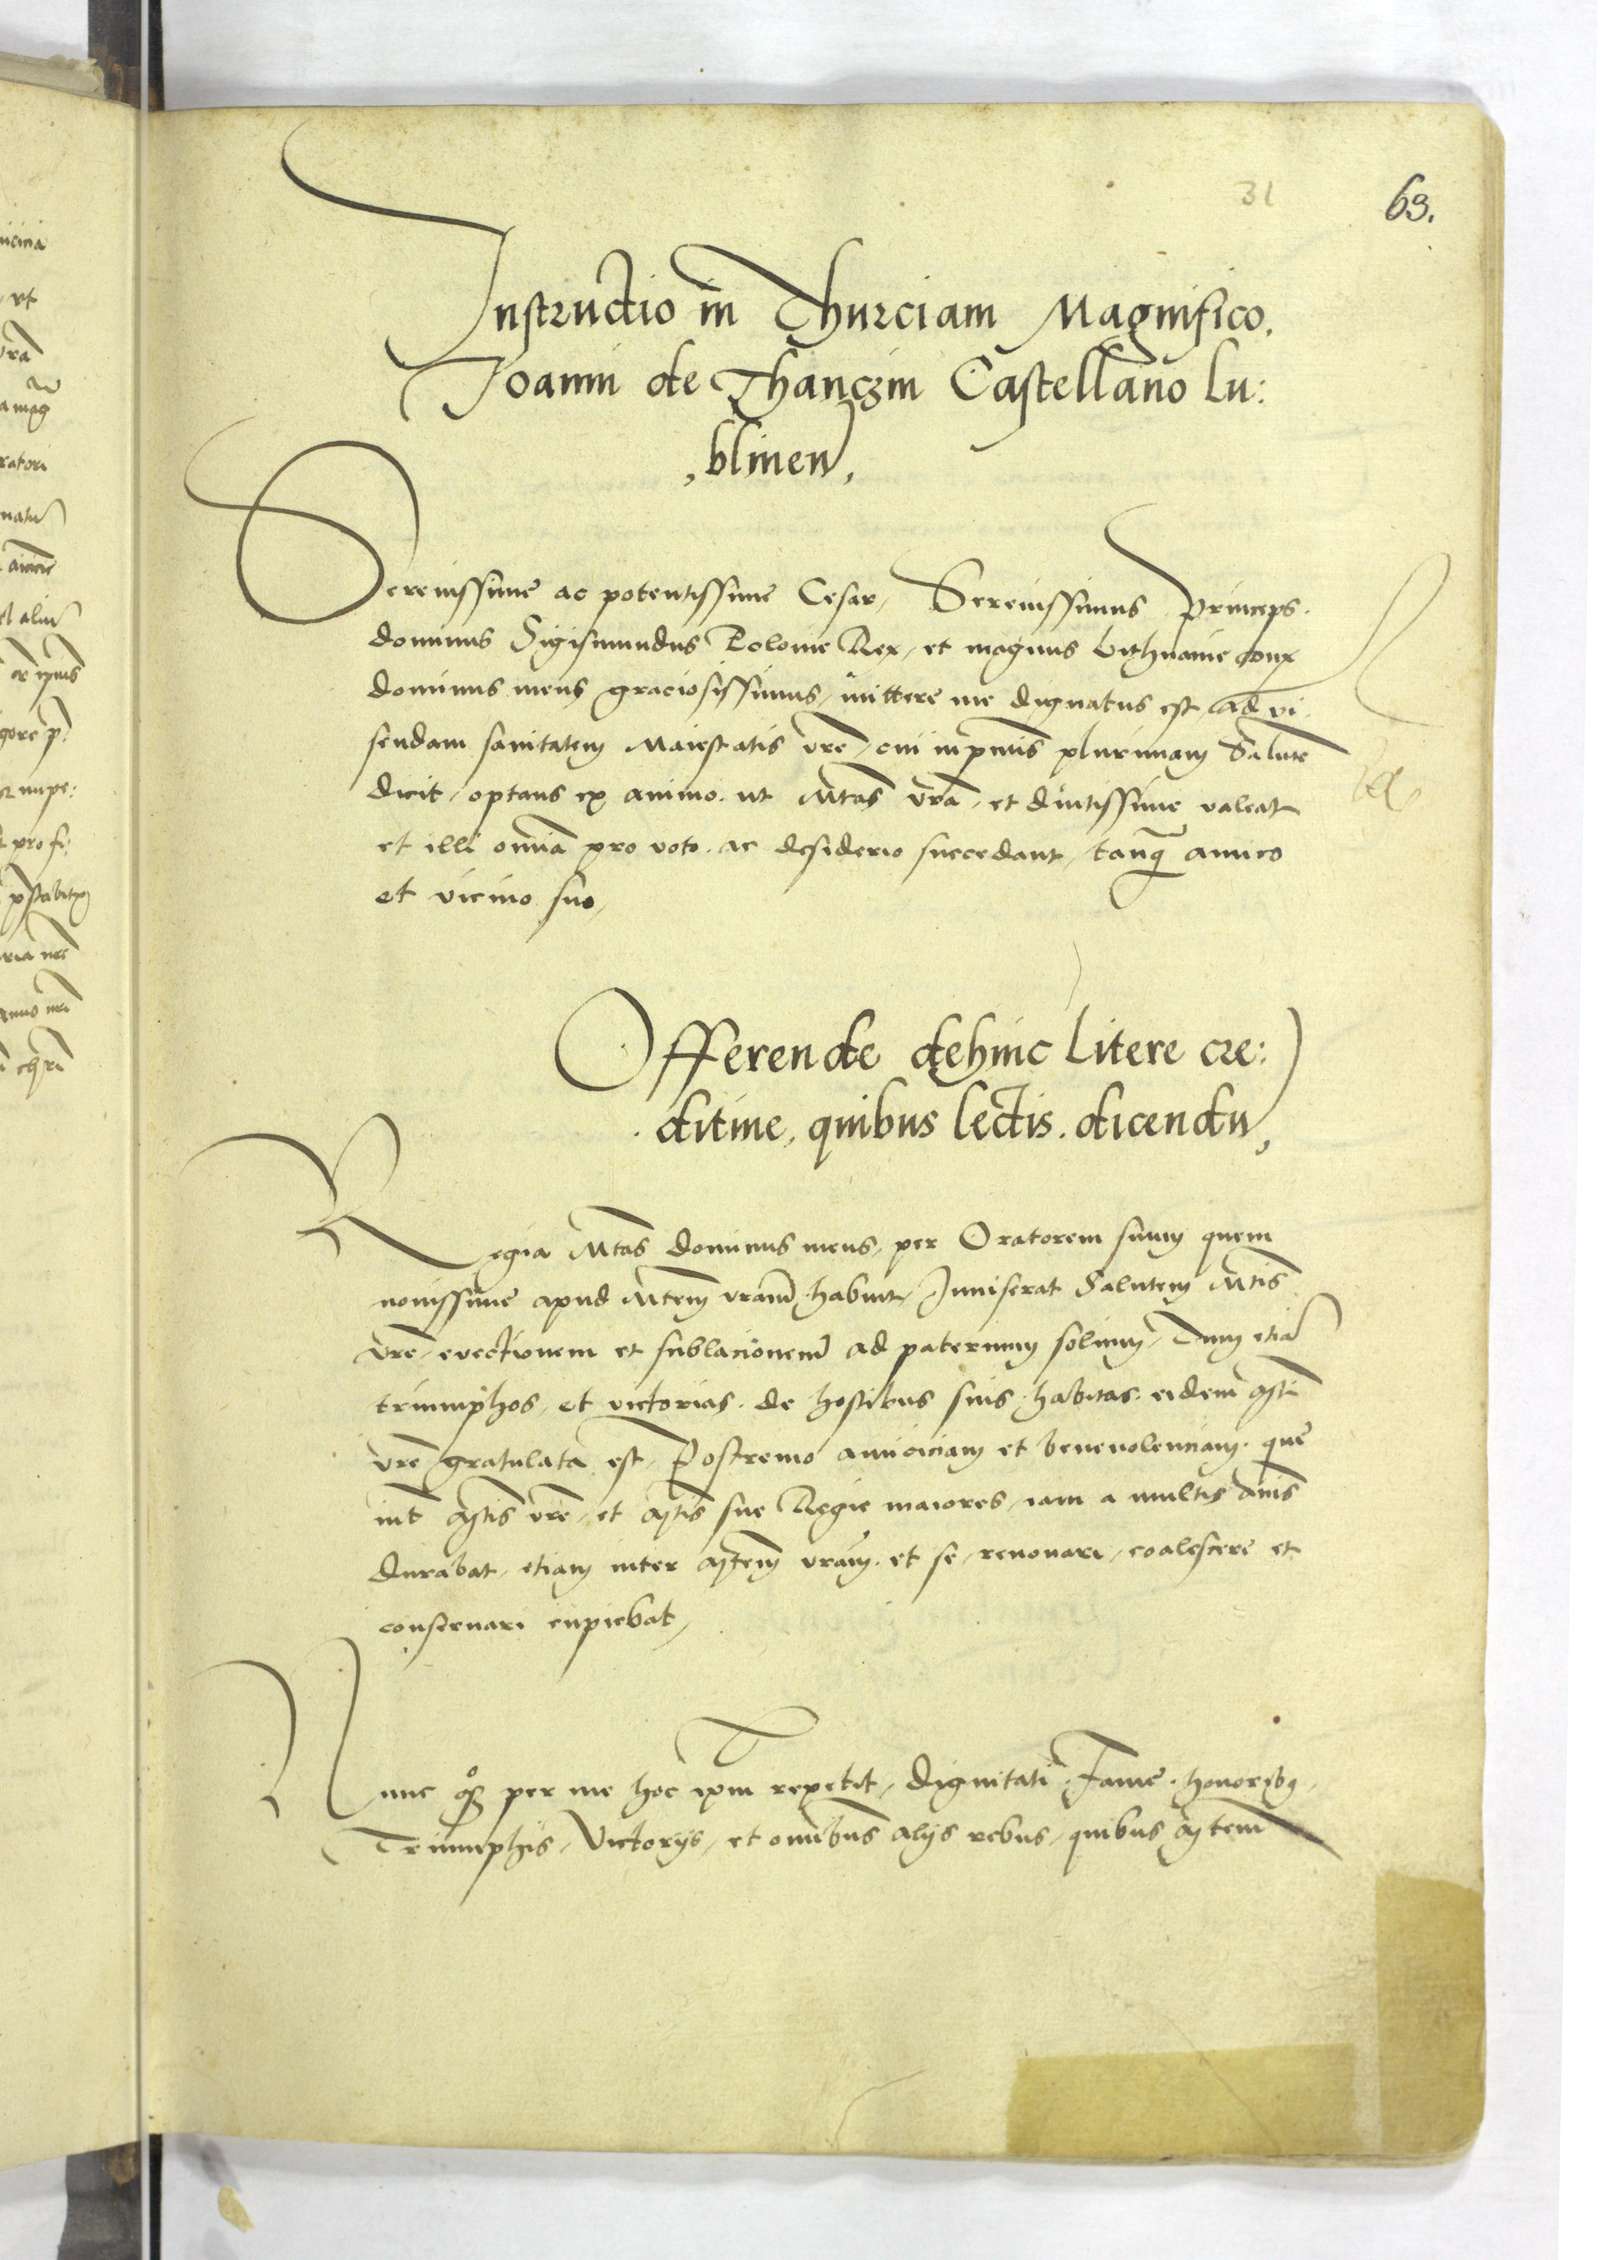 31
63.
Instructio in Thurciam Magnifico
Ioanni de Thanczin Castellano Lu:
blinen
Serenissime ac potentissime Cesar, Serenissimus Princeps
dominus Sigismundus Polonie Rex, et magnus Lithuanie dux
dominus meus graciosissimus, mittere me dignatus est, ad vi
sendam sanitatem Maiestatis vre, cui inprimis plurimam Salute
dicit, optans ex animo, ut Mtas vra, et diutissime valeat
et illi omnia pro voto ac desiderio succedant, tanq amico
et vicino suo,
Offerende dehinc Litere cre:
ditiue, quibus lectis dicendu,
Regia Mtas dominus meus, per Oratorem suum quem
nouissime apud Mtem vram habuit, Inniserat Salutem Mtis
vre, evectionem et sublacionem ad paternum solium, Tum etia
triumphos, et victorias de hostibus suis habitas eidem Mti
vre gratulata est, Postremo amiciciam et beneuolenciam que
int Mtis vre, et Mtis sue Regie maiores, iam a multis annis
durabat, etiam inter Mtem vram et se, renouari, coalescere et
conseruari cupiebat,
Nunc per me hoc ipm repetit, dignitati, Fame, honoribq,
Triumphis, Victorijs, et omnibus alijs rebus, quibus Mtem